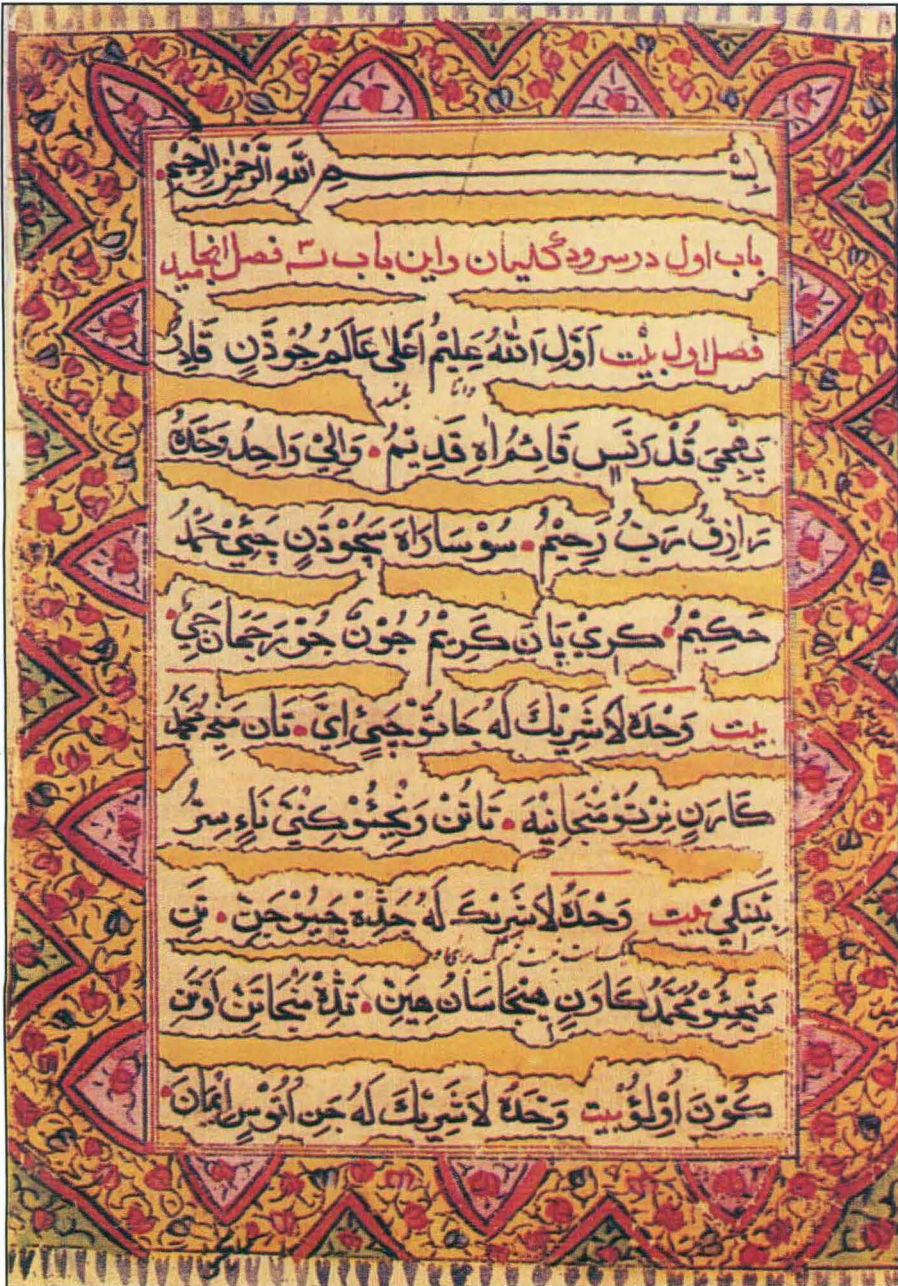 بِسْمِ اللّٰهِ الرَّحْمٰنِ الرَّحِيْمِ
باب اول در سرود کلیان و این باب سه ۳ فصل انجامید
فصل اول بیت اَوَّلِ اَللّٰهُ عَلِيْمُ اَعْلىٰ عَالَمَ جُوْدَّنِ قَادِرُ
دانا بلند
پَهٖجِيَ قُدْرَتَسٖ قَائِمُ اٰهِ قَدِيْمُ • وَالِيْ وَاحِدُ وَحْدَهٗ
رَازِقُ رَبُّ رَحِيْمُ • سُوْ سَارَاهَ سَچُوْ دَّنِ چَئِيْ حَمْدُ
حَكِيْمُ • كَرِيْ پَان كَرِيْمُ جُوْنَ جُوْرَ جَهَانَ جِيْ •
بیت وَحْدَهٗ لَاشَرِيْكَ لَهٗ جَا تَوْ چَئِيْ اِيَّ • تَان مَڃِ مُحَمَّدُ
كَارَنِ نِرْتَوْ مَنْجَانِيْهَ • تَا تَنْ وَڃِئُوْ كِنْئَ نَاءِ سِرُ
بِئَنِكَيْ بیت وَحْدَهٗ لَاشَرِيْكَ لَهٗ جَڎَهِ چَيُوْ جَنِ • تَنِ
مَڃِئُوْ مُحَمَّدُ كَارَنِ هِيْجَا سَان هِيَنِ • تَڎَهِ مَنْجَا تَنْ اَوْتَنِ
كَوْنَ اُوْلِئُوْ بیت وَحْدَهٗ لَاشَرِيْكَ لَهٗ جَنِ اُتُوْسِ اِيْمَان •